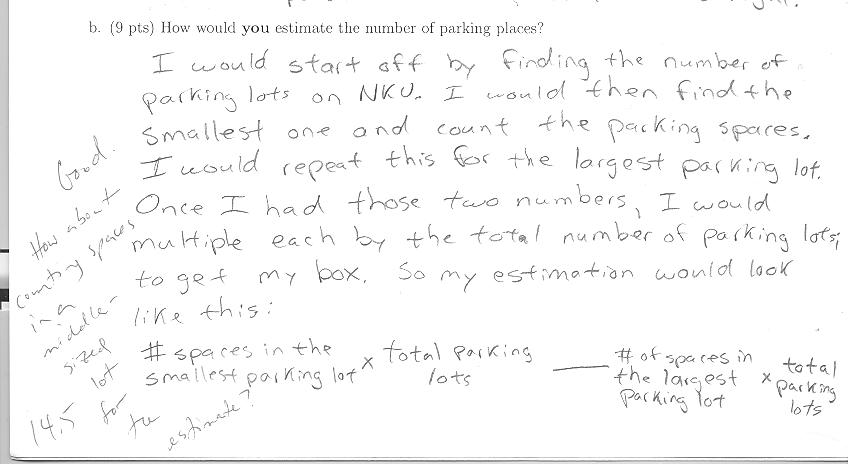 b. (9 pts) How would you estimate the number of parking places?
I would start off by finding the number of
parking lots on NKU. I would then find the
smallest one and count the parking spaces.
I would repeat this for the largest parking lot.
Once I had those two numbers, I would
multiple each by the total number of parking lots,
to get my box. So my estimation would look
like this:
# spaces in the
smallest parking lot x total parking
lots
— # of spaces in
the largest
parking lot x total
parking
lots
Good.
How about
counting spaces
in a
middle-
sized
lot
for
the
estimate?
14.5